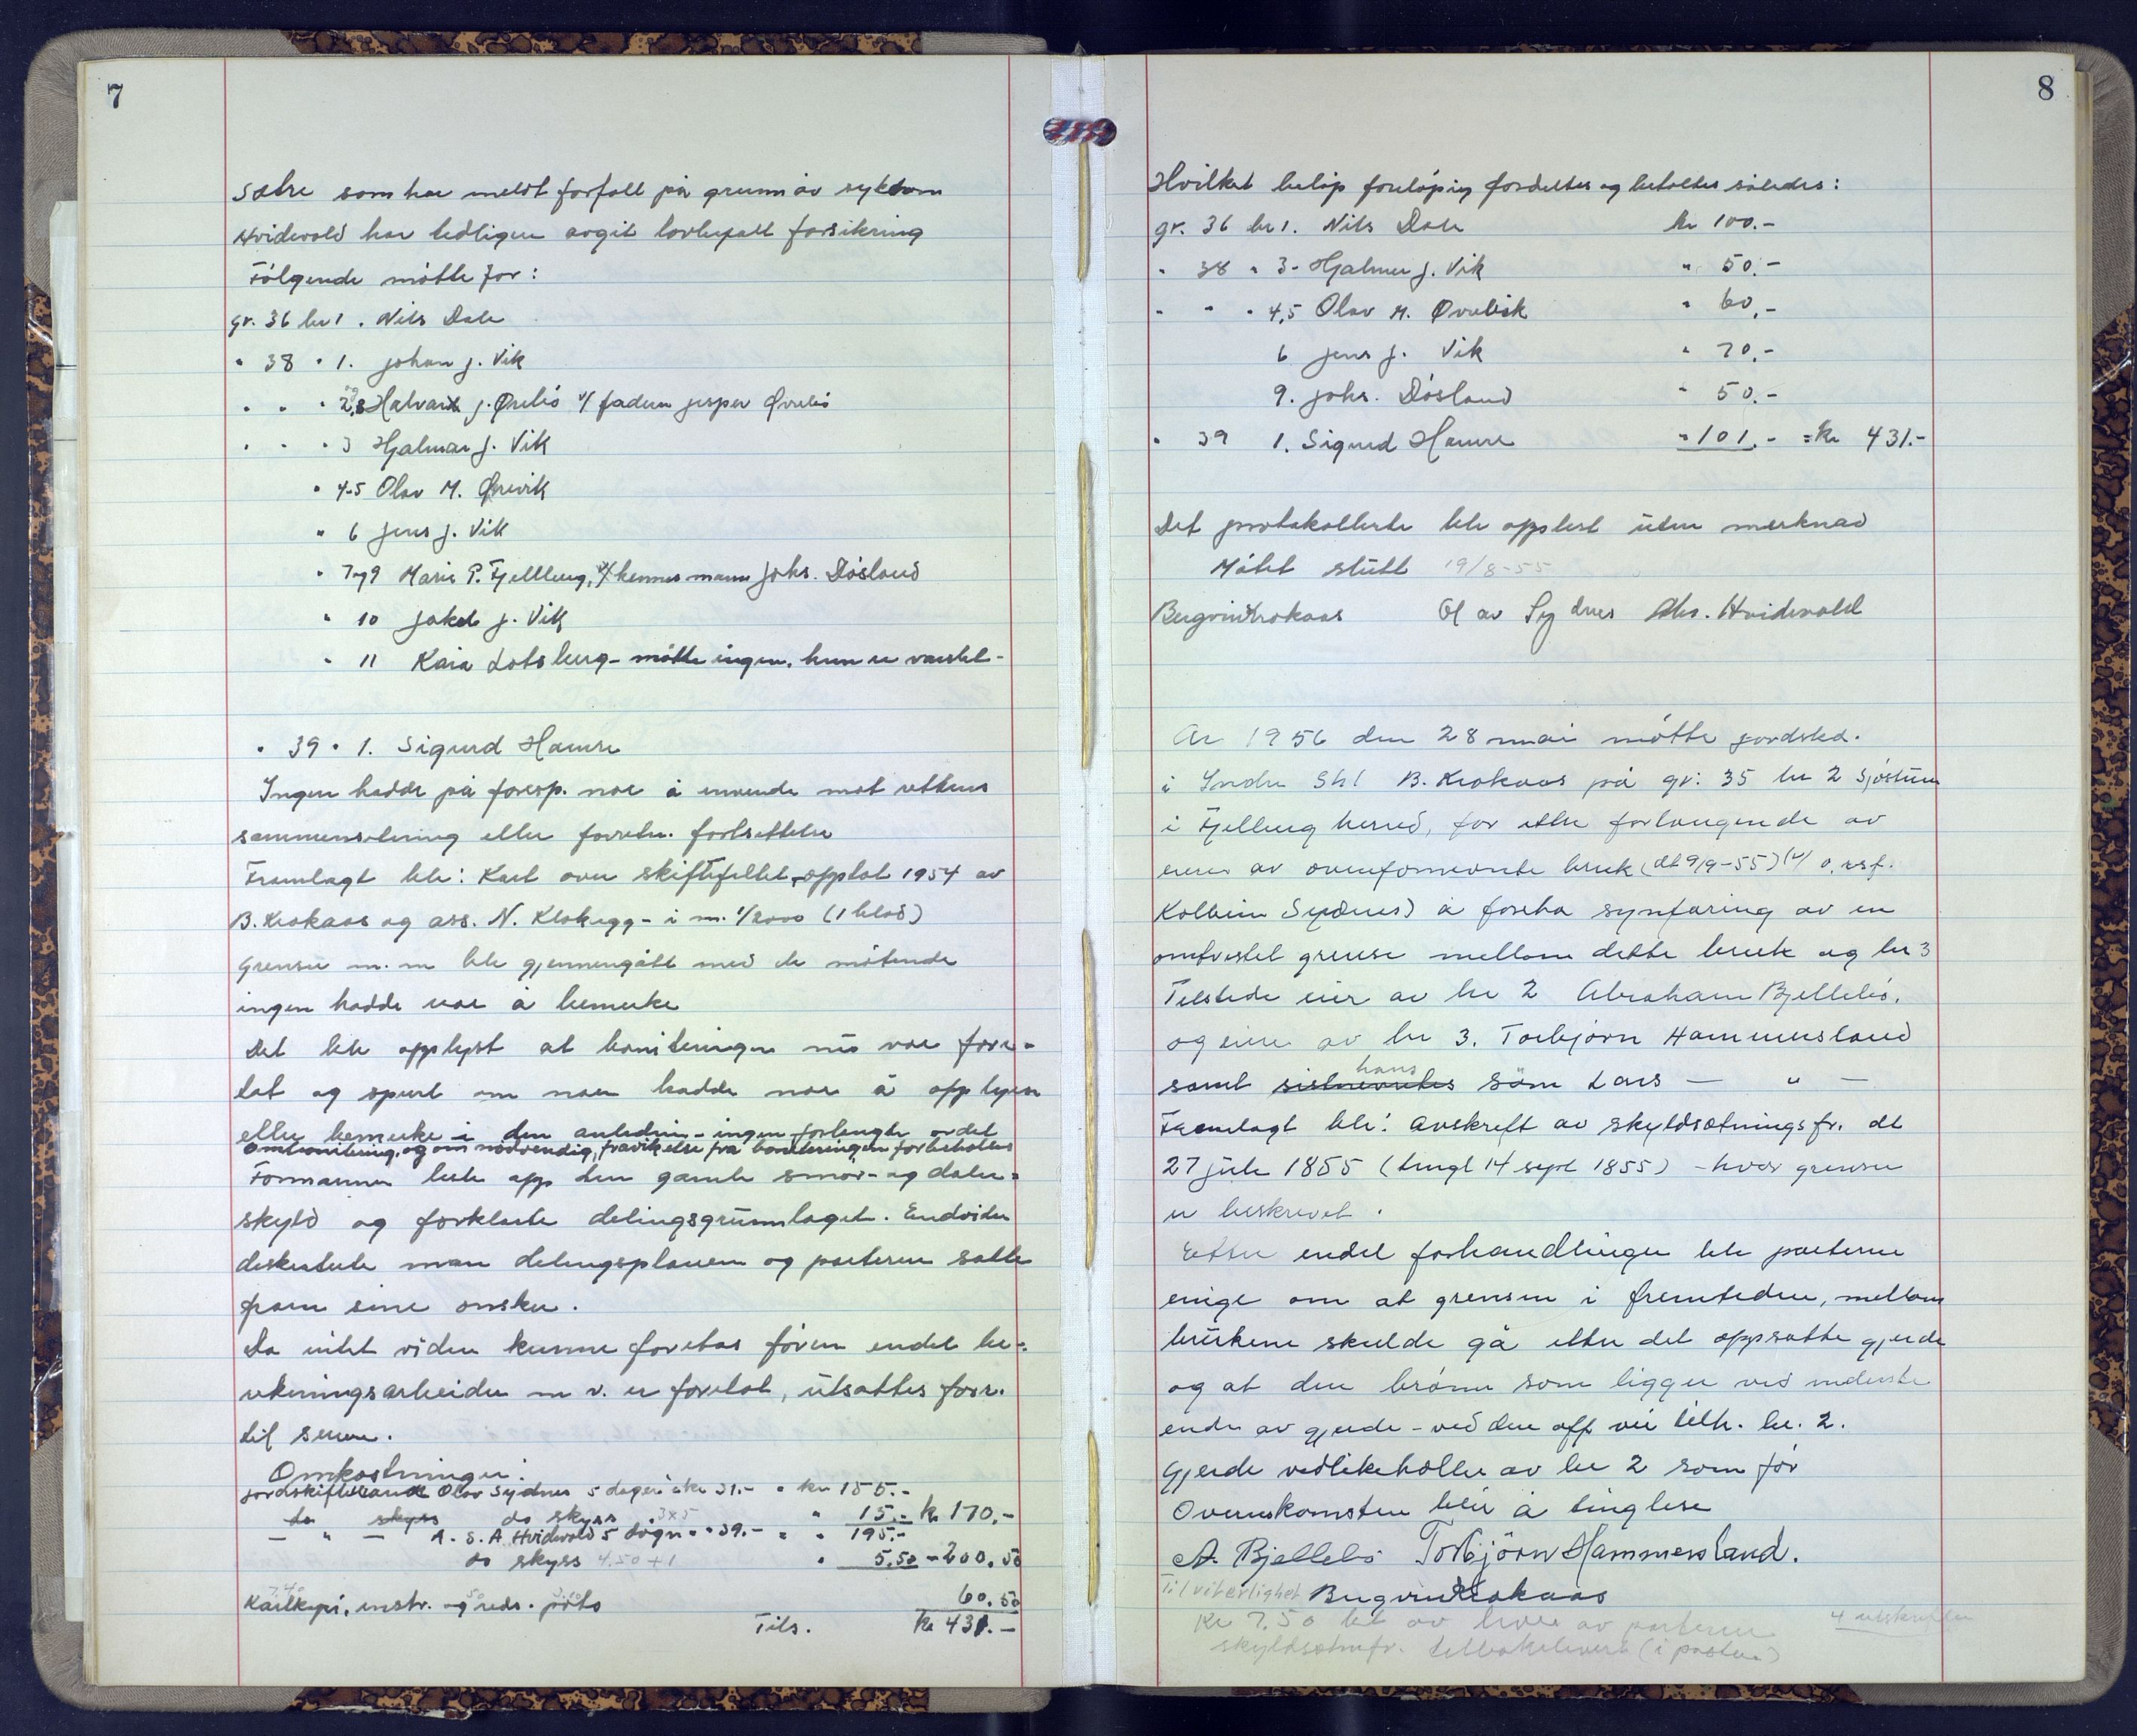 7
Sætre som har meldt forfall på grunn av sykdom
Hvidevold har tidligere avgit lovbefalt forsikring
Følgende møtte for:
gr. 36 br 1. Nils Dale
" 38 " 1. Johan J. Vik
" " " 2,8 Halvard J. Øvrebö v/ faderen Jesper Øvrebö
" " " 3 Hjalmar J. Vik
" 4-5 Olav M. Ørevik
" 6 Jens J. Vik
" 7 og 9 Marie P. Fjellberg, v/ hennes mann Johs. Døsland
" 10 Jakob J. Vik
" 11 Kaia Lotsberg - møtte ingen, hun er varslet -
" 39 " 1. Sigurd Hamre
Ingen hadde på foresp. noe å innvende mot rettens
sammensetning eller forretn. fortsettelse
Framlagt ble: Kart over skiftefeltet, opptat 1954 av
B. Krokaas og ass. N. Klokegg - i m. 1/2000 (1 blad)
Grenser m. m ble gjennemgått med de møtende
ingen hadde noe å bemerke
Det ble opplyst at boniteringen nu var fore-
tat og spurt om noen hadde noe å opplyse
eller bemerke i den anledning - ingen forlangte ordet
Ombonitering, og om nødvendig, fravikelse fra boniteringen forbeholdes
Formannen leste opp den gamle smør- og daler=
skyld og forklarte delingsgrunnlaget. Endvidere
diskuterte man delingsplanen og parterne satte
fram sine ønsker.
Da intet videre kunne foretas føren endel be-
rekningsarbeider m v. er foretat, utsattes forr.
til senere.
Omkostninger:
Jordskiftemand Olav Sydnes 5 dager à kr 31.- = kr 155.-
do skyss do skyss 3x5 " 15.- kr 170.-
- " - A. S. A Hvidevold 5 døgn " " 39.- = " 195.-
do skyss 4.50 + 1 " 5.50 - 200.50
Kartkopi, instr. og reds. porto 60.50
Tils. kr 431.-
8
Hvilket beløp foreløpig fordeltes og betaltes således:
gr. 36 br 1. Nils Dale kr 100.-
" 38 " 3 - Hjalmar J. Vik " 50.-
" " " 4,5 Olav M. Øvrebik " 60.-
6 Jens J. Vik " 70.-
9. Johs. Døsland " 50.-
" 39 1. Sigurd Hamre " 101.- = kr 431.-
Det protokollerte ble opplest uten merknad
Møtet slutt 19/8-55
Bergvin Krokaas Olav Sydnes Abr. Hvidevold
År 1956 den 28 mai møtte jordskd.
i Indre Shl B. Krokaas på gr: 35 br 2 Sjøstun
i Fjelberg herred, for etter forlangende av
eieren av ovenfornevnte bruk (dt 9/9-55) (v/ o.rsf.
Kolbein Sydnes) å foreta synfaring av en
omtvistet grense mellom dette bruk og br 3
Tilstede eier av br 2 Abraham Bjellebö,
og eier av br 3. Torbjørn Hammersland
samt sistnevntes hans sönn Lars - " -
Framlagt ble: Avskrift av skyldsetningsfr. dt
27 juli 1855 (tingl 14 sept 1855) - hvor grensen
er beskrevet.
Etter endel forhandlinger ble parterne
enige om at grensen i fremtiden, mellom
brukene skulde gå etter det oppsatte gjerde
og at den brønn som ligger ved nederste
ende av gjerde - ved den off vei tilh. br. 2.
Gjerde vedlikeholdes av br 2 som før
Overenskomsten blir å tinglese
A. Bjellebö Torbjörn Hammersland.
Til vitterlighet Bergvin Krokaas
Kr 7.50 bet av hver av parterne 4 utskrifter
skyldsetnfr. tilbakelevert (i posten)